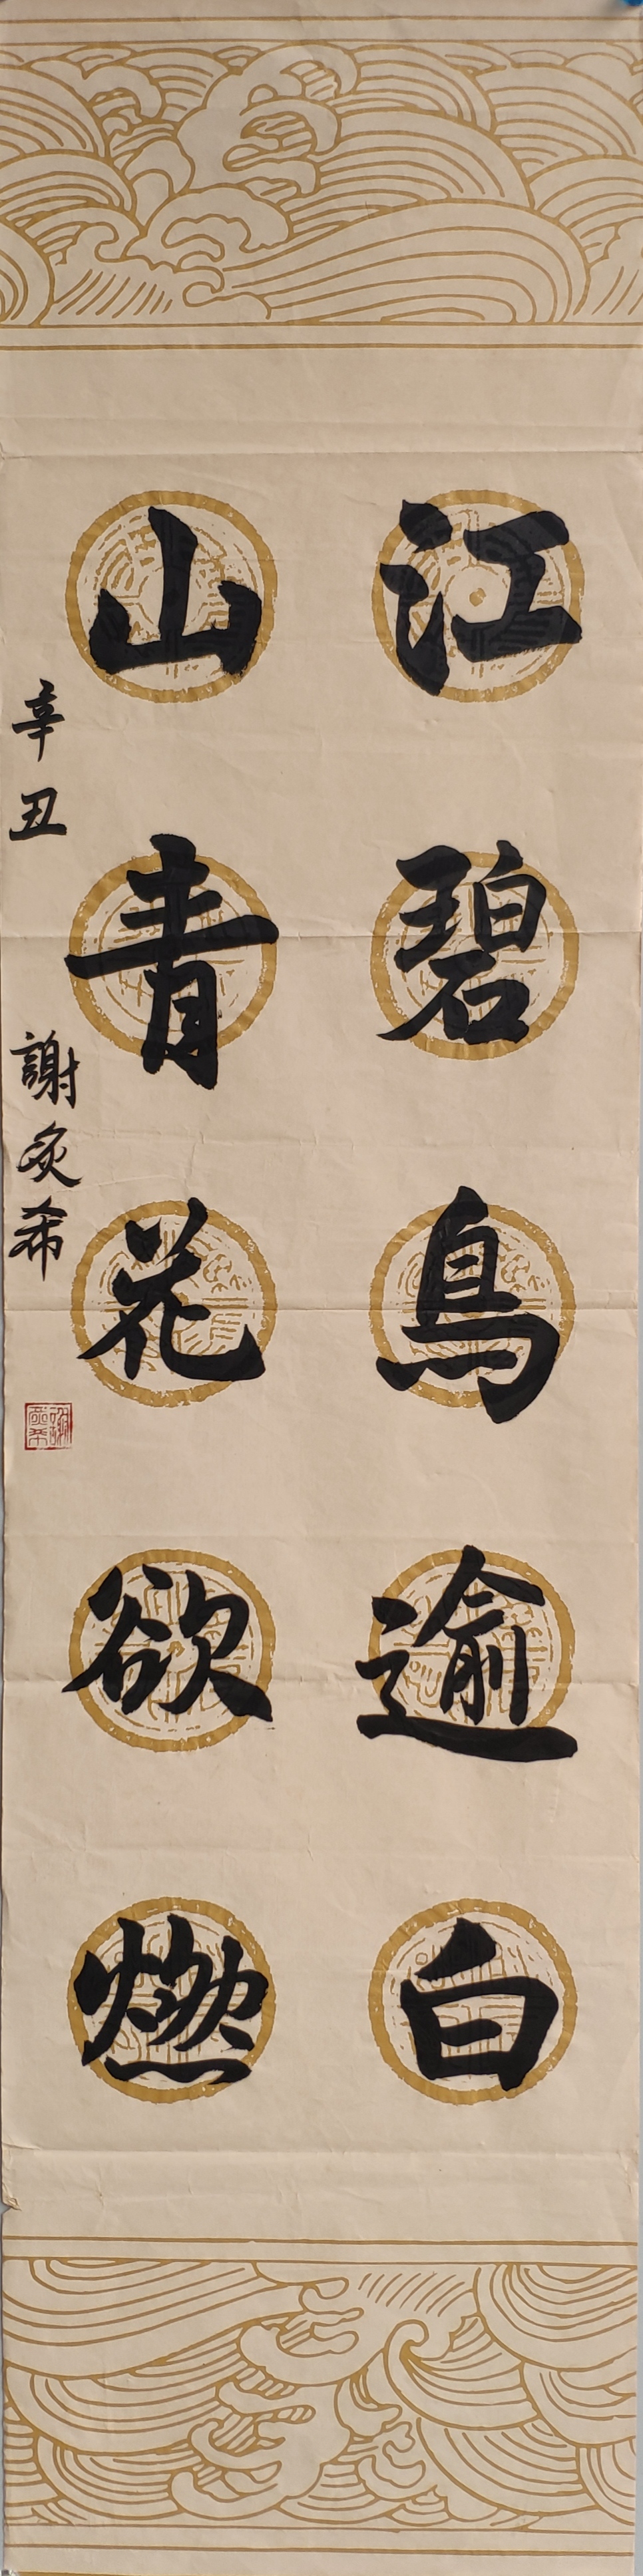 江碧鳥逾白
山青花欲燃
辛丑 謝炎希